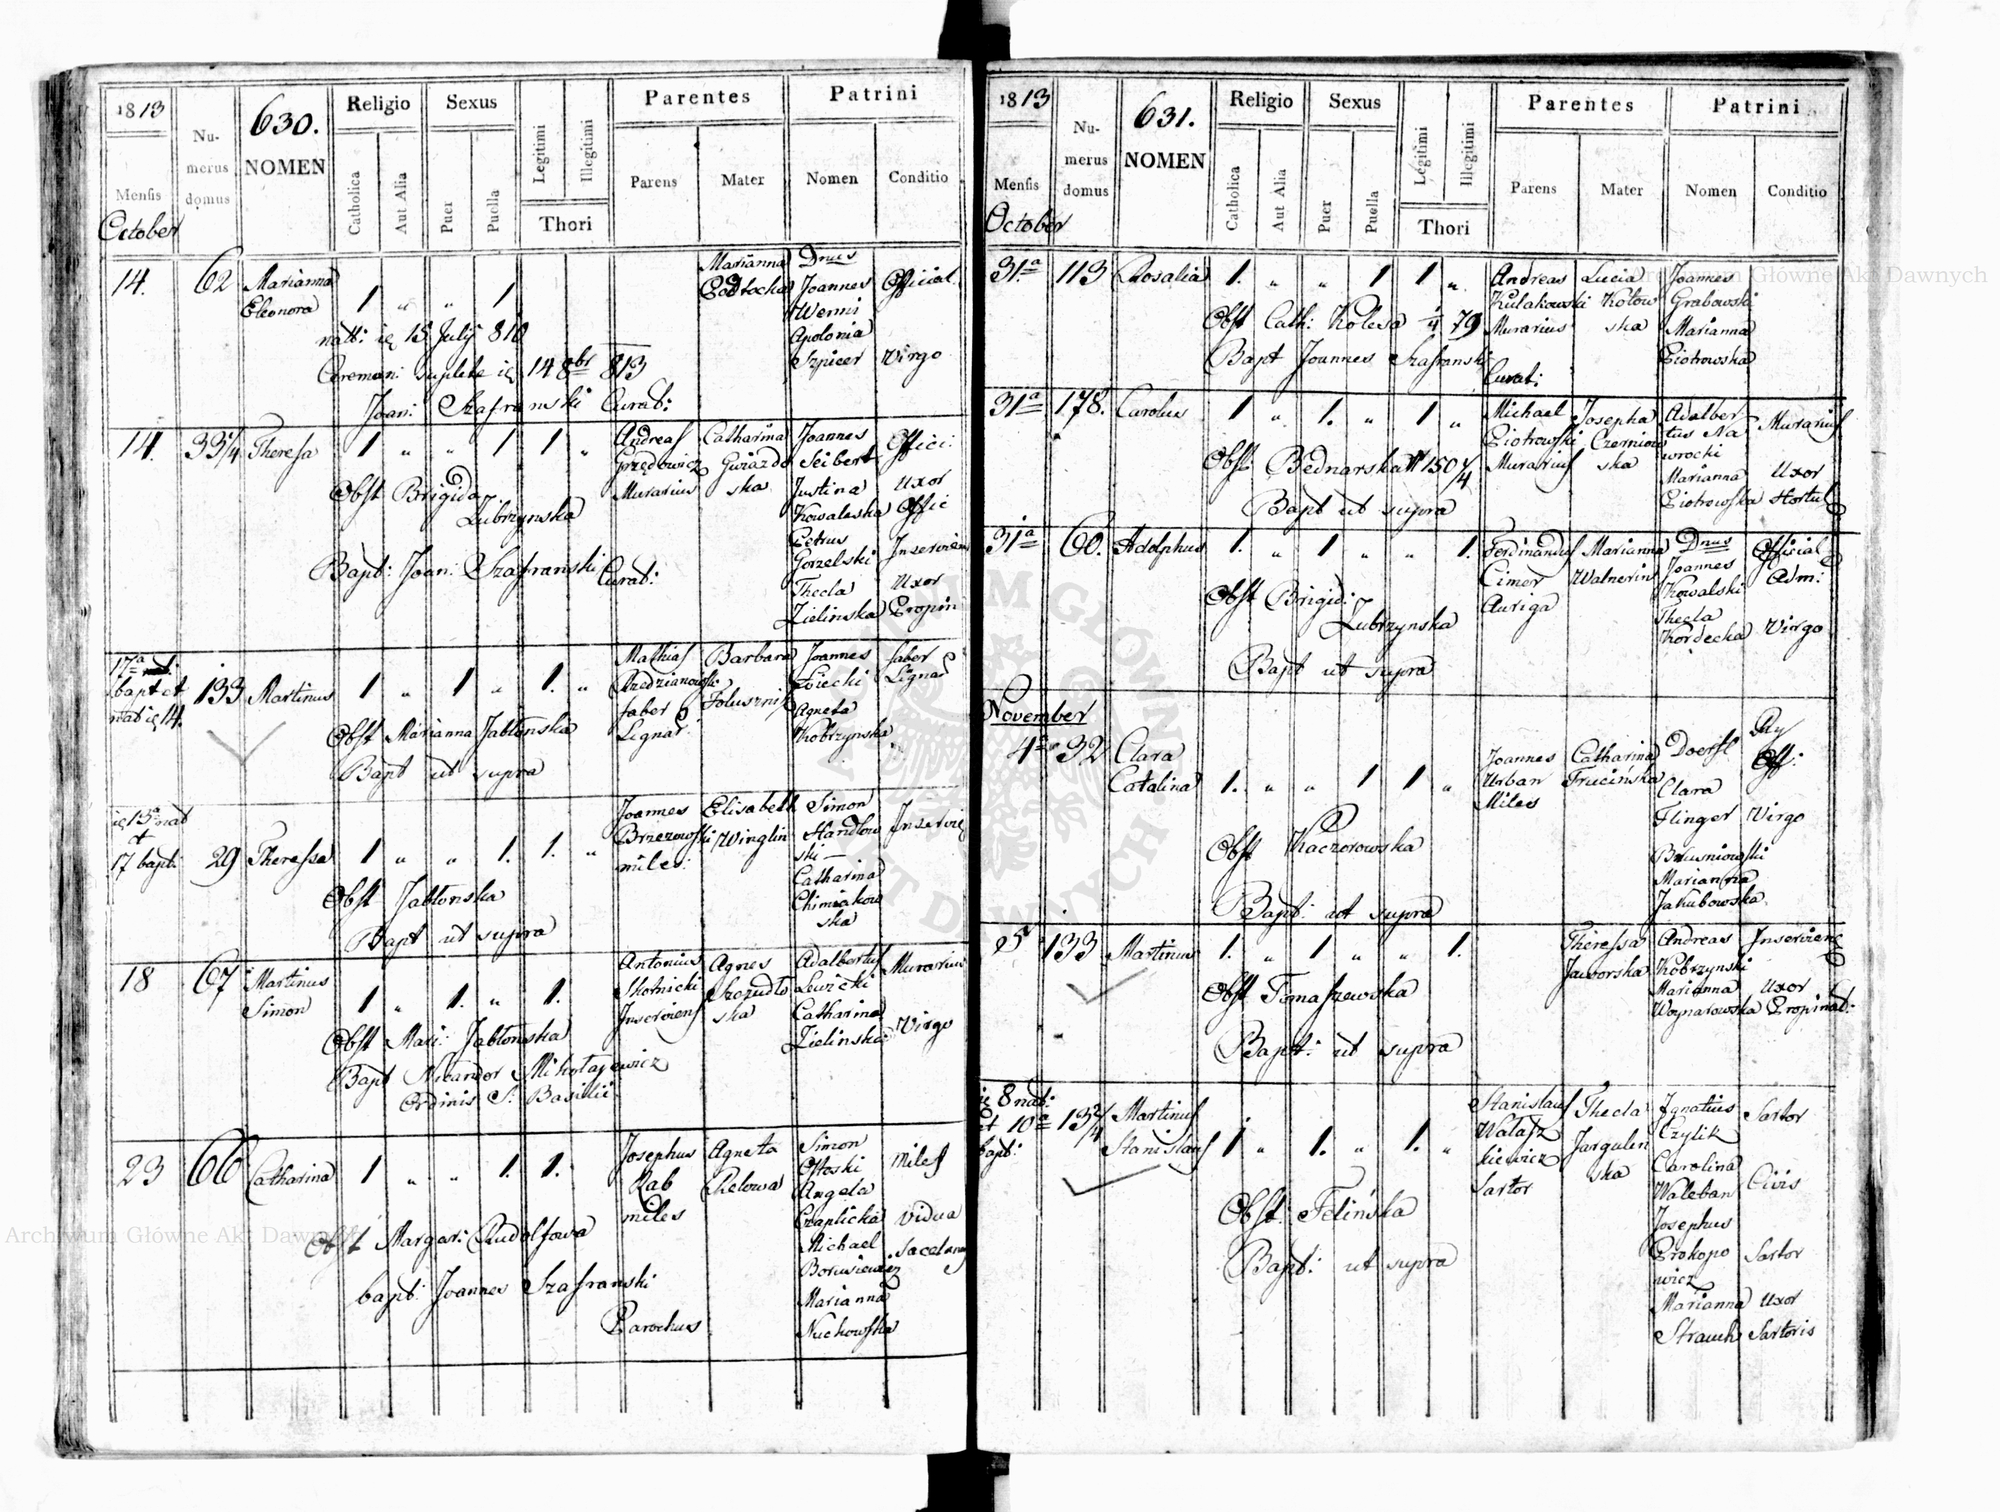 1813
Numerus domus
630.
NOMEN
Religio
Sexus
Legitimi
Illegitimi
Thori
Parentes
Patrini
Mensis
Catholica
Aut Alia
Puer
Puella
Parens
Mater
Nomen
Conditio
October
14. 62 Marianna Eleonora 1 „ „ 1
natt: ię 15 July 810
Ceremoni: suplete ię 14 8br 813
Joan: Szafranski Curat:
Marianna
Dnus Joannes Wenni Official
Apolonia Szpicer Virgo
14. 33 1/4 Theressa 1 „ „ 1 1 „
Obst Brigida
Lubrzynska
Bapt: Joan: Szafranski Curat:
Andreas Grzędowicz Murarius
Catharina Gwiazdo ska
Joannes Seibert Offici:
Justina Kowaleska Uxor Offic
Petrus Gorzelski
Thecla Zielinska Uxor Propin
17a bapt et nat ię 14. 133 Martinus 1 „ 1 „ 1. „
Obst Marianna Jabłonska
Bapt ut supra
Mathias faber Lignar:
Barbara
Joannes faber Lignar
Agneta Kobrzynska
ię 15a nat et 17 bapt: 29 Theressa 1 „ „ 1. 1. „
Obst Jabłonska
Bapt ut supra
Joannes Brzezowski miles:
Elisabeth Winglin
Simon Handlow ski —
Catharina Chimiakow ska
18 67 Martinus Simon 1 „ 1. „ 1.
Obst Mari: Jabłonska
Bapt Nicandor Mikołajewicz
Ordinis S: Basilii
Antonius Skotnicki Inserviens
Agnes Szczudło ska
Adalbertus Lewicki Murarius
Catharina Zielinska Virgo
23 66 Catharina 1 „ „ 1. 1.
Obst Margar: Rudolfowa
bapt: Joannes Szafranski
Parochus
Josephus Rab miles
Agneta Chelowa
Simon Ottoski Miles
Angela Czaplicka Vidua
Michael
Marianna Nuckowska
1813
Numerus domus
631.
NOMEN
Religio
Sexus
Legitimi
Illegitimi
Thori
Parentes
Patrini
Mensis
Catholica
Aut Alia
Puer
Puella
Parens
Mater
Nomen
Conditio
October
31a 113 Rosalia 1. „ „ 1 1 „
Obst Cath: Kolesa 1/4 79
Bapt Joannes Szafranski
Curat:
Andreas Kulakowski Murarius
Lucia Kotow ska
Joannes Grabowski
Marianna Piotrowska
31a 178. Carolus 1 „ 1. „ 1 „
Obst Bednarska # 150
Bapt ut supra
Michael Piotrowski Murarius
Josepha Czerniow ska
Adalber tus Na wrocki Murarius
Marianna Piotrowska Uxor Hortul
31a 60. Adolphus 1. „ 1 „ „ 1.
Obst Brigid:
Lubrzynska
Bapt ut supra
Ferdinandus Cimer Auriga
Marianna Walnerin
Dnus Joannes Kowalski Official Adm:
Thecla Kordecka Virgo
November
4a 32 Clara Catalina 1. „ „ 1 1 „
Obst Kaczorowska
Bapt: ut supra
Joannes Urban Miles
Catharina Trucińska
Doerfl
Clara Flinger Virgo
Marianna Jakubowska
5 133 Martinus 1. „ 1 „ „ 1.
Obst Tomaszewska
Bapt: ut supra
Theressa Jaworska
Andreas Kobrzynski
Marianna Woynarowska Uxor Propinat:
ię 8 nat: et 10a bapt: Martinus Stanislaus 1 „ 1. „ 1. „
Obst: Felińska
Bapt: ut supra
Stanislaus Wałasz kiewicz Sartor
Thecla Jargulen ska
Ignatius Czylik Sartor
Carolina Waleban Civis
Josephus Prokopo wicz Sartor
Marianna Strauch Uxor Sartoris
Archiwum Główne Akt Dawnych
Archiwum Główne Akt Dawnych
ARCHIWUM GŁÓWNE AKT DAWNYCH